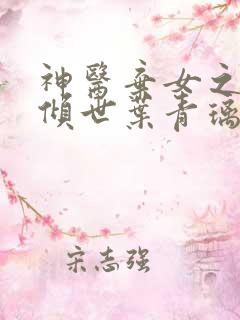 神醫棄女之
傾世葉青璃
宋志强